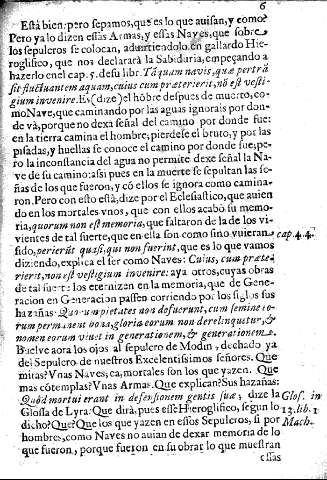 6
Està bien: pero sepamos, que es lo que auisan, y como?
Pero ya lo dizen essas Armas, y essas Naves, que sobre
los sepulcros se colocan, aduirtiendolo en gallardo Hie-
roglifico, que nos declararà la Sabiduria, empeçando a
hazerlo en el cap. 5. de su lib. Tã quam navis, quæ pertrã
sit fluctuantem aquam, cuius cum præterierit, nõ est vesti-
gium invenire. Es (dize) el hõbre despues de muerto, co-
mo Nave, que caminando por las aguas ignorais por don-
de và, porque no dexa señal del camino por donde fue:
en la tierra camina el hombre; pierdese el bruto, y por las
pisadas, y huellas se conoce el camino por donde fue, pe-
ro la inconstancia del agua no permite dexe señal la Na-
ve de su camino: assi pues en la muerte se sepultan las se-
ñas de los que fueron, y cõ ellos se ignora como camina-
ron. Pero con esto està, dize por el Eclesiastico, que auien
do en los mortales vnos, que con ellos acabò su memo-
ria, quorum non est memoria, que faltaron de la de los vi-
vientes de tal suerte, que en ella son como sino vuieran
cap. 44.
sido, perierũt quasi, qui non fuerint, que es lo que vamos
diziendo, explica el ser como Naves: Cuius, cum præte-
rierit, non est vestigium invenire: aya otros, cuyas obras
de tal suerte los eternizen en la memoria, que de Gene-
racion en Generacion passen corriendo por los siglos sus
hazañas: Quorum pietates non defuerunt, cum semine eo-
rum permanent bona, gloria eorum non derelinquetur, &
nomen eorum viuet in generationem, & generationem.
Buelve aora los ojos al sepulcro de Modin, dechado ya
del Sepulcro de nuestros Excelentissimos señores. Que
miras? Vnas Naves; ea, mortales son los que yazen. Que
mas cõtemplas? Vnas Armas. Que explican? Sus hazañas:
Quòd mortui erant in defensionem gentis suæ; dize la
Glos. in
Glossa de Lyra: Que dirà, pues esse Hieroglifico, segun lo
13. lib. 1
dicho? Que? Que los que yazen en essos Sepulcros, si por
Mach.
hombres, como Naves no auian de dexar memoria de lo
que fueron, porque fueron en su obrar lo que muestran
essas